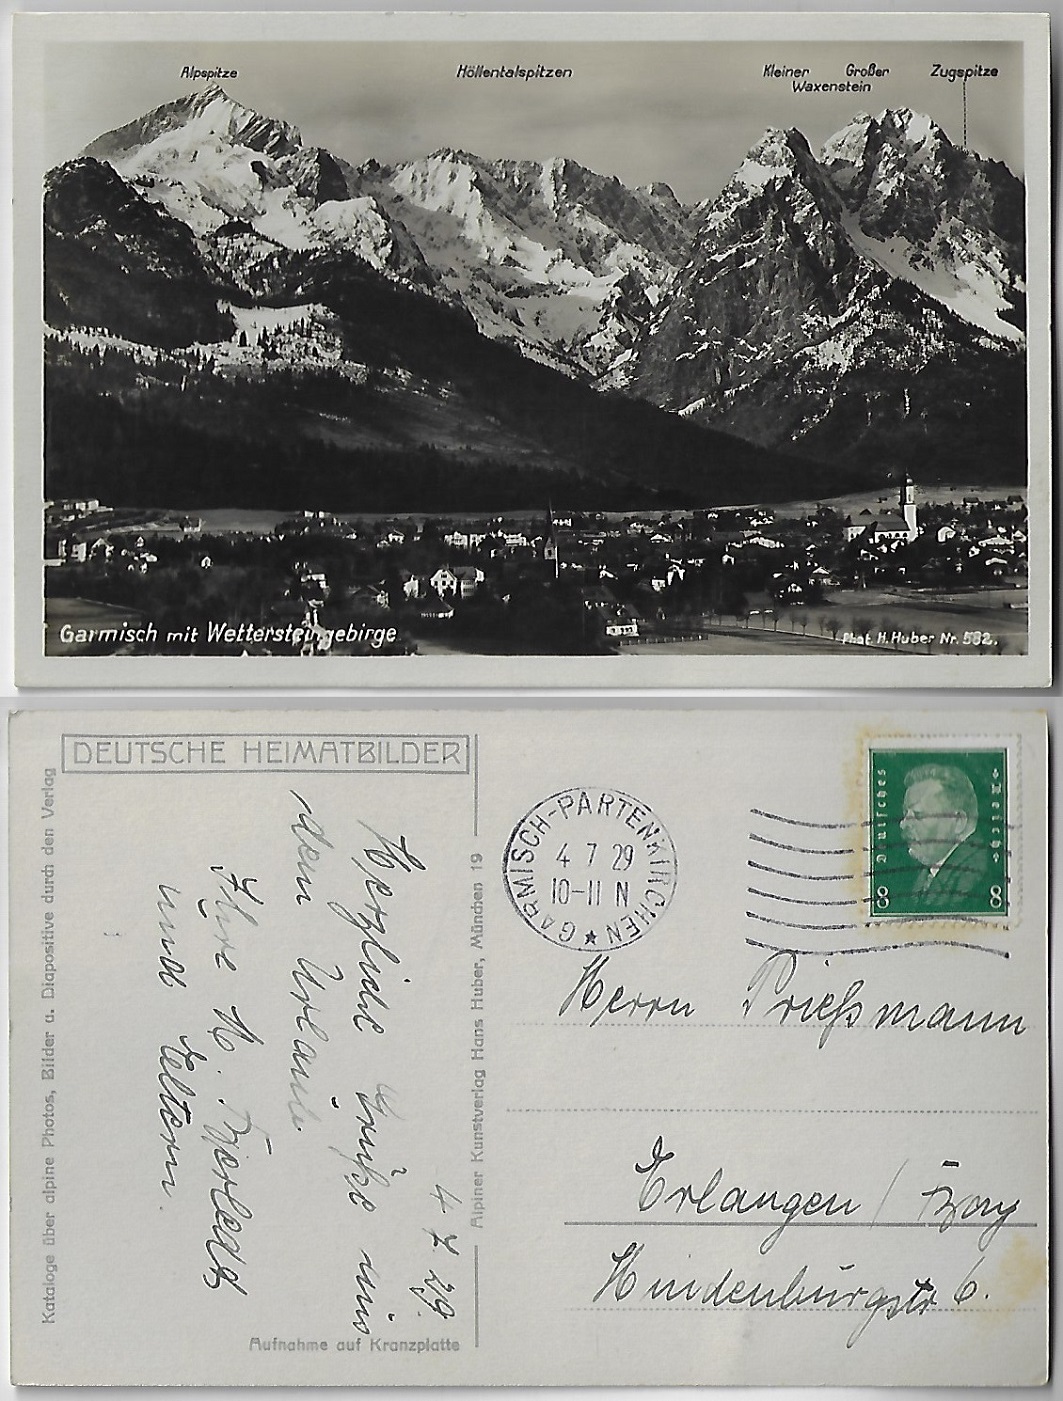 Alpspitze
Höllentalspitzen
Kleiner Großer
Waxenstein
Zugspitze
Garmisch mit Wettersteingebirge
Phot. H. Huber Nr. 582.
DEUTSCHE HEIMATBILDER
Kataloge über alpine Photos, Bilder u. Diapositive durch den Verlag
4 7 29.
Herzliche Grüße aus
dem Urlaub.
Ihre H.
und Eltern.
Aufnahme auf Kranzplatte
Alpiner Kunstverlag Hans Huber, München 19
GARMISCH-PARTENKIRCHEN
4 7 29
10-11 N
Deutsches Reich
8 8
Herrn Prießmann
Erlangen / Bay
Hindenburgstr 6.